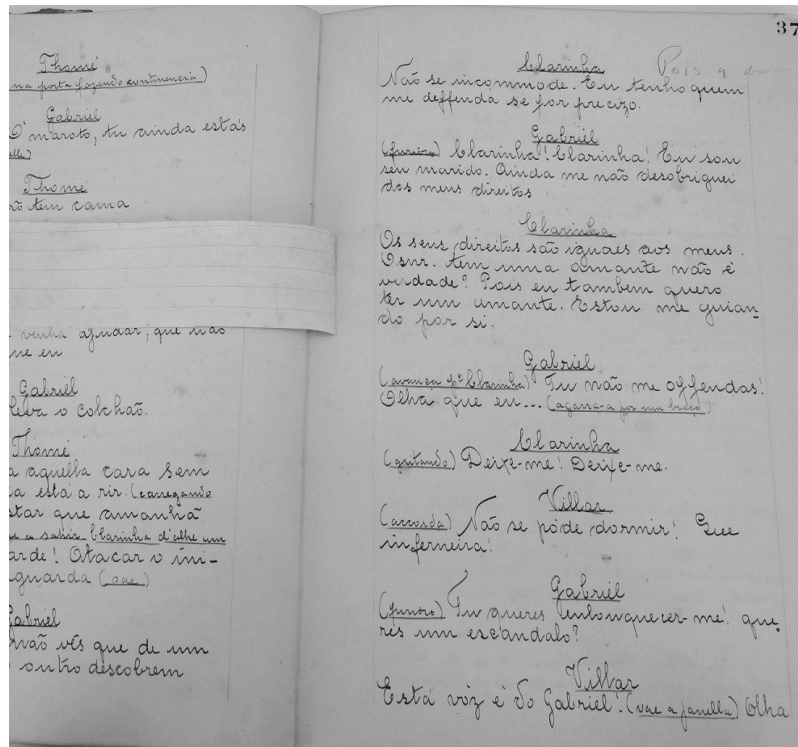 Thomé
na porta fazendo continencia)
Gabriél
O' maroto, tu ainda estás
elle)
Thomé
não tem cama
venha ajudar, que não
ue eu
Gabriél
leva o colchão.
Thomé
a aquella cara sem
a está a rir. (carregando
star que amanhã
a sahir Clarinha d'elhe um
arde! Atacar o ini-
guarda (vae)
Gabriél
não vês que de um
outro descobrem
37
Clarinha
Pois q
Não se incommode. Eu tenho quem
me deffenda se for precizo.
Gabriél
(furioso) Clarinha! Clarinha! Eu sou
seu marido. Ainda me não desobriguei
dos meus direitos.
Clarinha
Os seus direitos são iguaes aos meus.
O snr. tem uma amante não é
verdade? Pois eu tambem quero
ter um amante. Estou me guian
do por si.
Gabriél
(avança pª Clarinha) Tu não me offendas!
Olha que eu... (agarra-a por um braço)
Clarinha
(gritando) Deixe-me! Deixe-me.
Villar
(accorda) Não se póde dormir! Que
inferneira!
Gabriél
(furioso) Tu queres enlouquecer-me! que
res um escandalo?
Villar
Esta voz é do Gabriél! (vae a janella) Olha